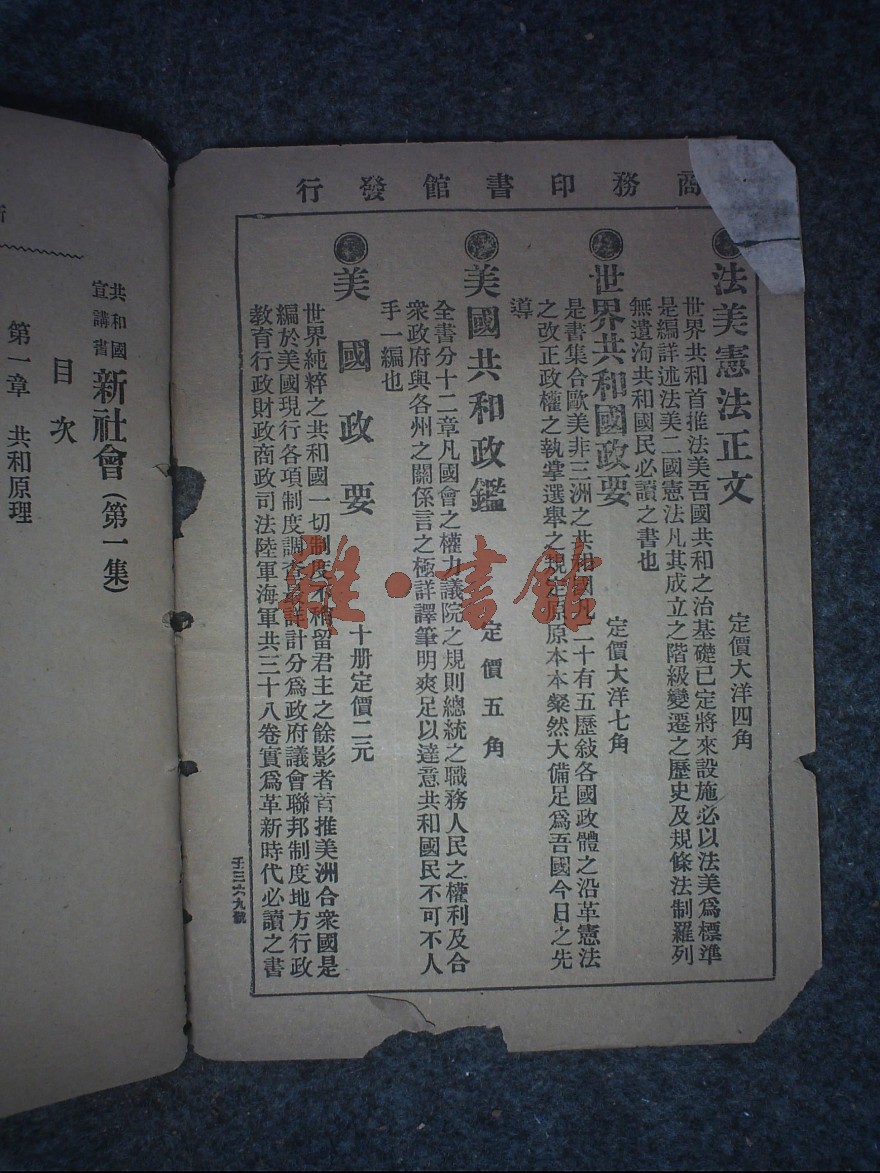 商務印書館發行
法美憲法正文
定價大洋四角
世界共和首推法美吾國共和之治基礎已定將來設施必以法美爲標準
是編詳述法美二國憲法凡其成立之階級變遷之歷史及規條法制羅列
無遺洵共和國民必讀之書也
世界共和國政要
定價大洋七角
是書集合歐美非三洲之共和國凡二十有五歷敍各國政體之沿革憲法
之改正政權之執掌選舉之規定原原本本粲然大備足爲吾國今日之先
導
美國共和政鑑
定價五角
全書分十二章凡國會之權力議院之規則總統之職務人民之權利及合
衆政府與各州之關係言之極詳譯筆明爽足以達意共和國民不可不人
手一編也
美國政要
十册定價二元
世界純粹之共和國一切制度不稍留君主之餘影者首推美洲合衆國是
編於美國現行各項制度調查最詳計分爲政府議會聯邦制度地方行政
教育行政財政商政司法陸軍海軍共三十八卷實爲革新時代必讀之書
壬三六九號
共和國
宣講書
新社會(第一集)
目次
第一章 共和原理
雒·書館